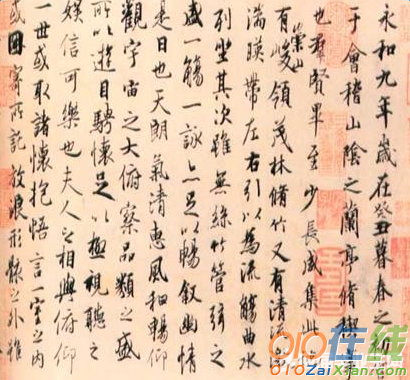 永和九年歲在癸丑暮春之初會
于會稽山陰之蘭亭脩稧事
也羣賢畢至少長咸集此
有崇山峻領茂林脩竹又有清流
湍暎帶左右引以為流觴曲水
列坐其次雖無絲竹管弦之
盛一觴一詠亦足以暢叙幽情
是日也天朗氣清惠風和暢仰
觀宇宙之大俯察品類之盛
所以遊目騁懷足以極視聽之
娛信可樂也夫人之相與俯仰
一世或取諸懷抱悟言一室之內
或因寄所託放浪形骸之外雖
在线
ZaiXian.com